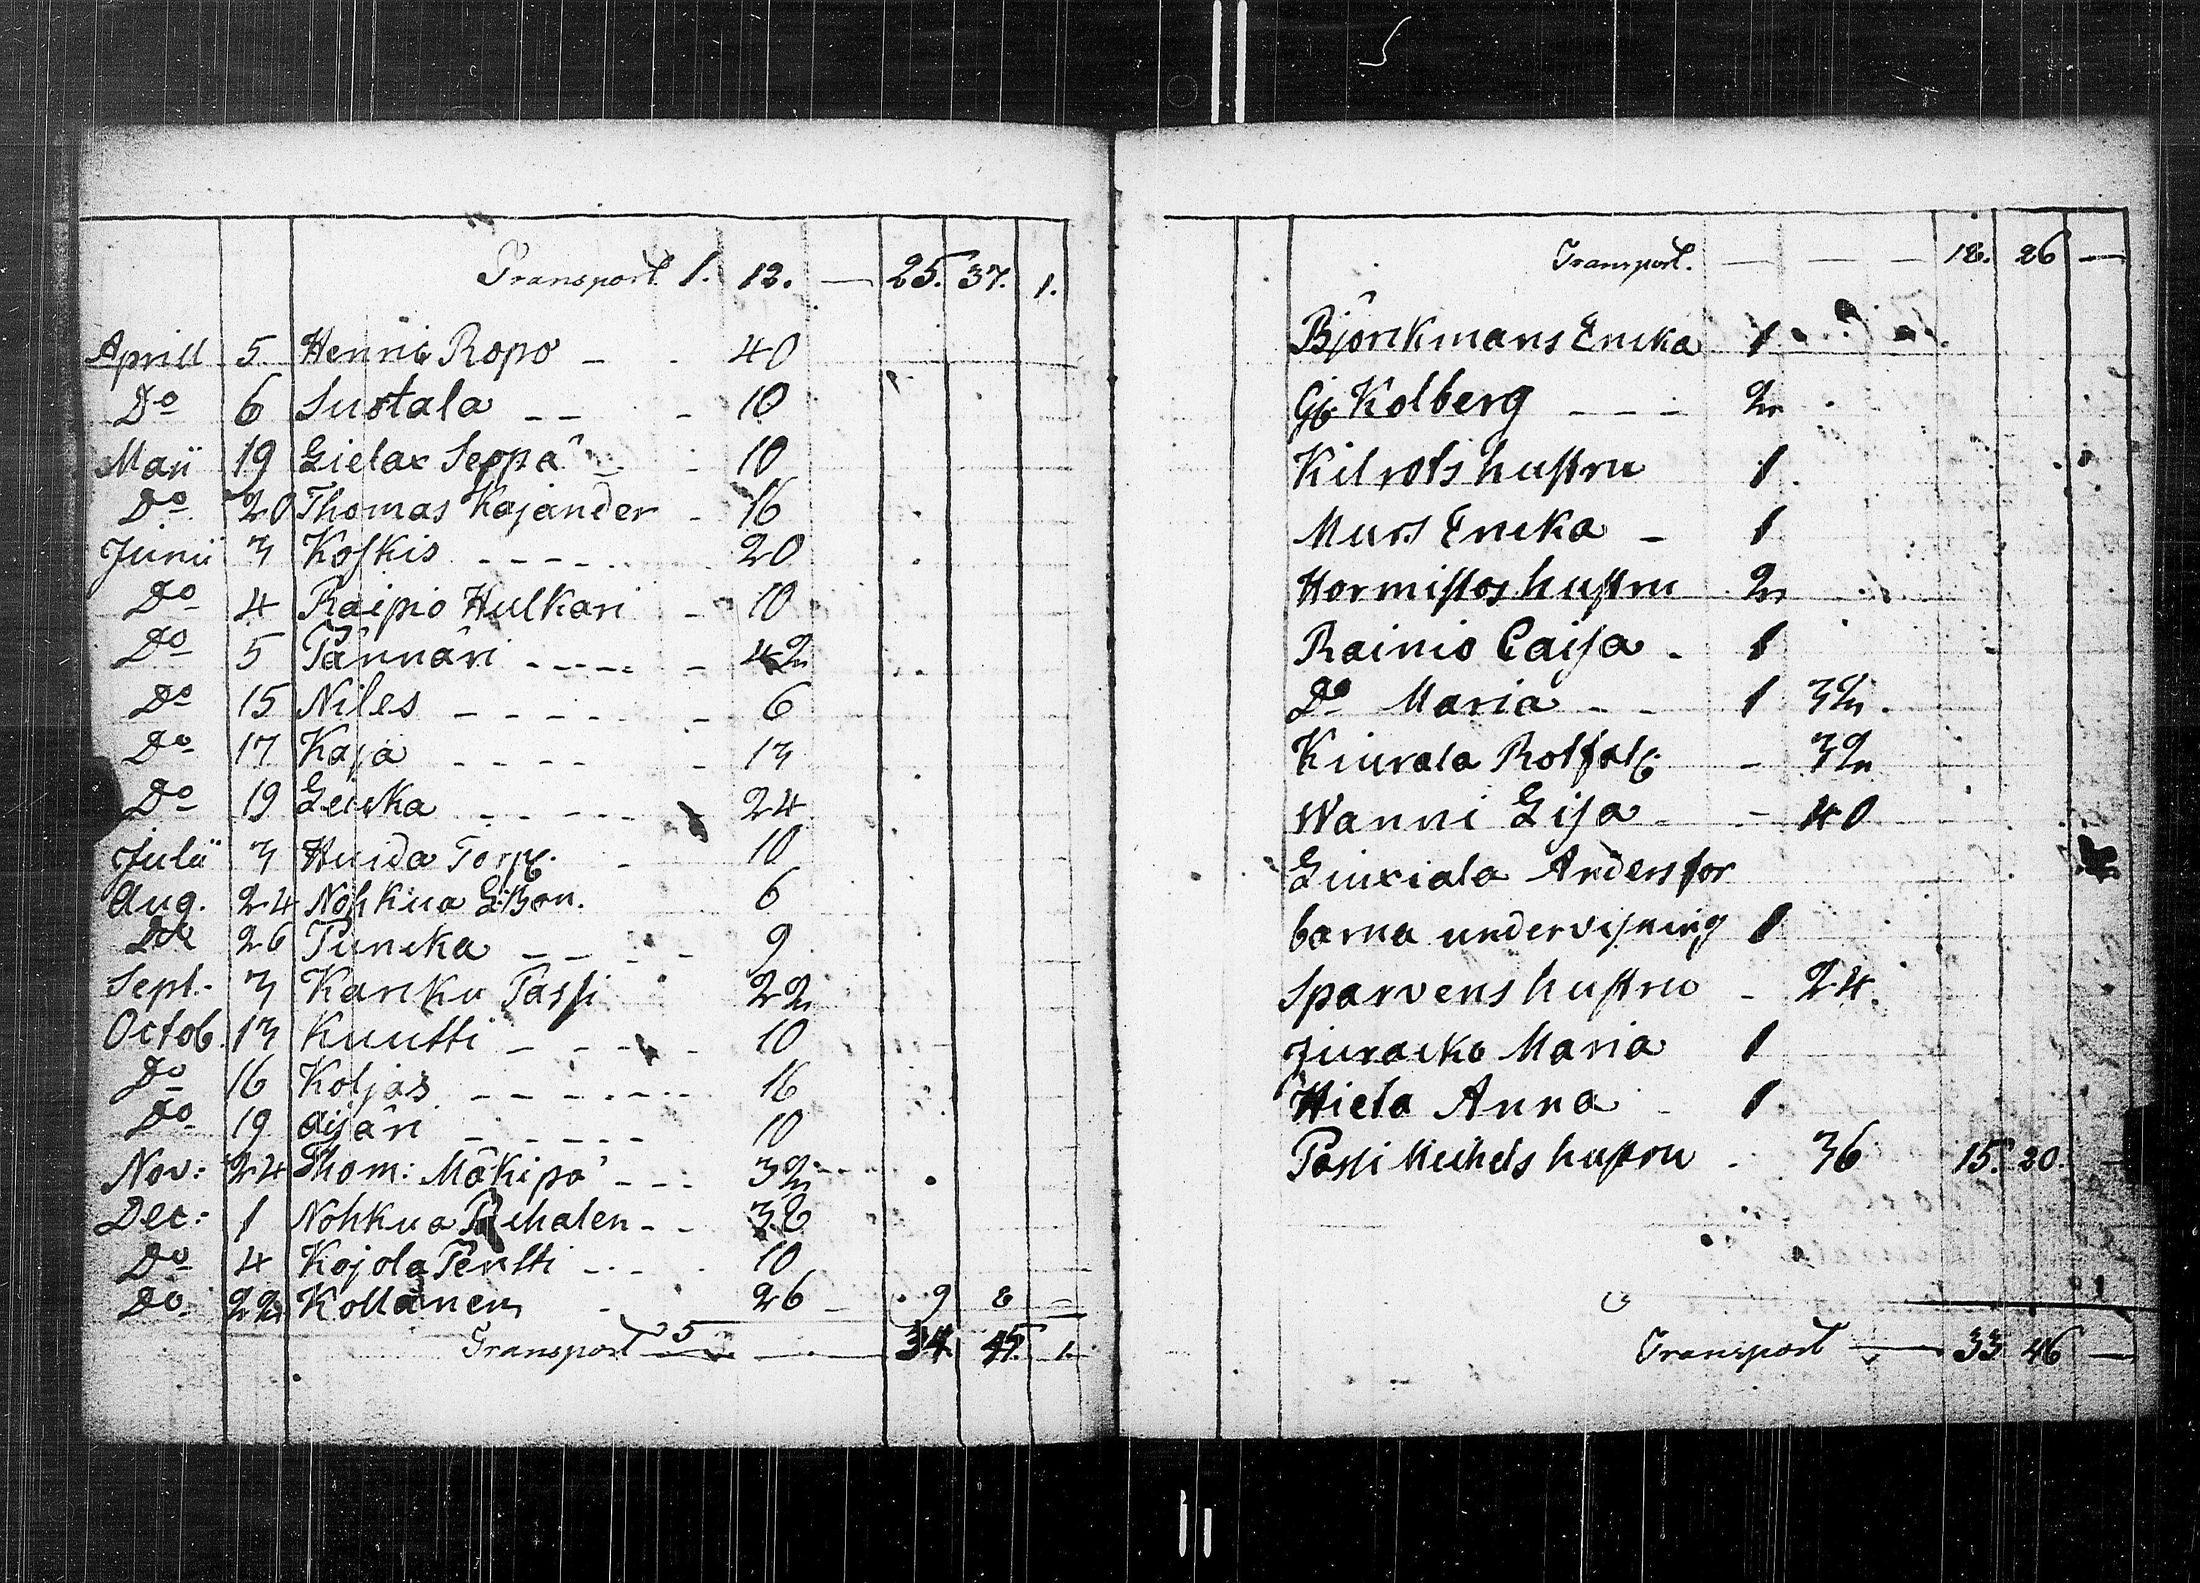 Transport 1. 12. — 25. 37. 1.
Aprill 5 Henric Ropo - - 40
Do 6 Sustala - - - 10
Maii 19 Lielax Seppä - 10
Do 20 Thomas Kajander - 16
Junii 3 Koskis - - - - 20
Do 4 Raipio Hulkari - 10
Do 5 Pännäri - - - - - 42
Do 15 Niles - - - - - 6
Do 17 Kaja - - - - - 13
Do 19 Leiska - - - - 24
Julii 3 Huida Torp. - 10
Aug. 24 Nohkua G:Bon. 6
Do 26 Tuncka - - - - 9
Sept. 3 Karcku Passi 22
Octob. 13 Kuutti - - - - 10
Do 16 Koljas - - - - - 16
Do 19 Aijäri - - - - - 10
Nov: 24 Thom: Mäkipä - - - 32
Dec: 1 Nohkua - - 38
Do 4 Kojola Pertti - - - 10
Do 22 Kollanen - 26 - 9 8 —
Transport 5 — 34. 45. 1.
Transport. — — — 18. 26 —
Björckmans Encka 1
Gf. Kolberg - - - 2
Kilrots hustru 1
Murs Encka - 1
Hormistos hustru 2
Rainio Caisa - 1
Do Maria - - 1 32.
Kiurala Rotfatt. - 32
Wanni Lisa - - 40
Liuxiala Anders for
barna undervisning 1
Sparvens hustru - 24.
Juracko Maria 1
Hieta Anna - 1
Passi Michels hustru - 36 15. 20. —
Transport — 33 46 —